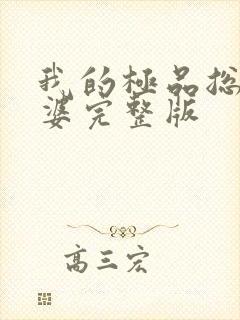 我的極品総
婆完整版
高三宏